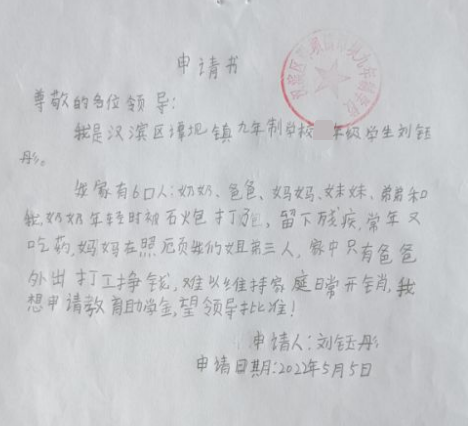 申请书
尊敬的各位领导：
我是汉滨区坝镇九年制学校年级学生刘钰
彤。
我家有6口人：奶奶、爸爸、妈妈、妹妹、弟弟和
我，奶奶年轻时被石炮打，留下残疾，常年又
吃药，妈妈在照顾我们姐弟三人，家中只有爸爸
外出打工挣钱，难以维持家庭日常开销，我
想申请教育助学金，望领导批准！
申请人：刘钰彤
申请日期：2022年5月5日